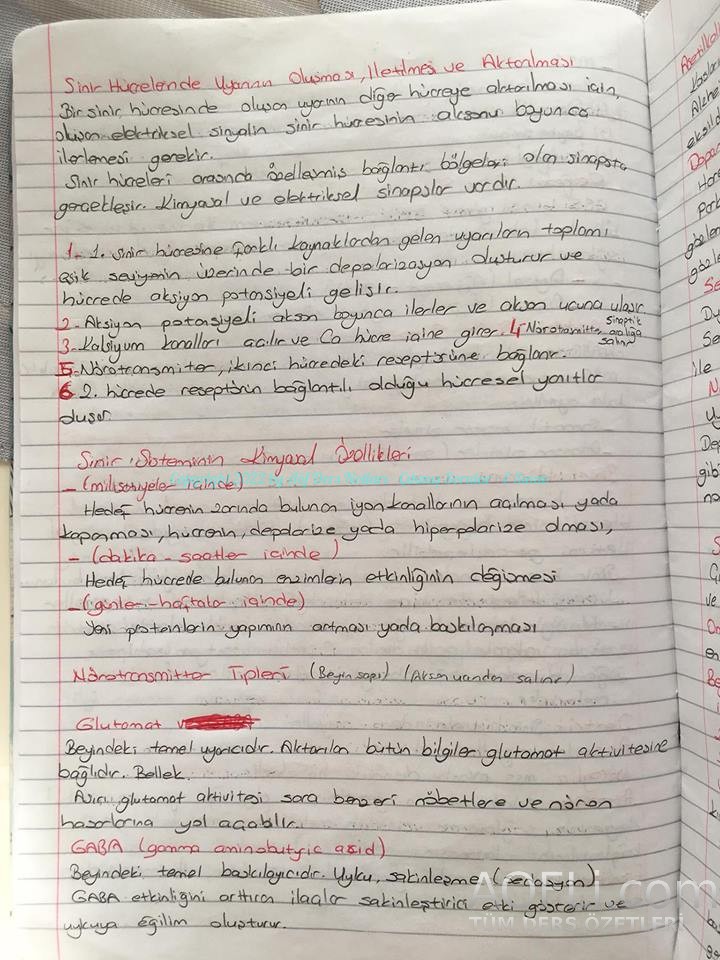 Sinir Hücrelerinde Uyarının Oluşması, İletilmesi ve Aktarılması
Bir sinir hücresinde oluşan uyarının diğer hücreye aktarılması için,
oluşan elektriksel sinyalin sinir hücresinin aksonu boyunca
ilerlemesi gerekir.
Sinir hücreleri arasında özelleşmiş bağlantı bölgeleri olan sinapsta
gerçekleşir. Kimyasal ve elektriksel sinapslar vardır.
1- 1. sinir hücresine farklı kaynaklardan gelen uyarıların toplamı
eşik seviyenin üzerinde bir depolarizasyon oluşturur ve
hücrede aksiyon potansiyeli gelişir.
2- Aksiyon potansiyeli akson boyunca ilerler ve akson ucuna ulaşır.
3- Kalsiyum kanalları açılır ve Ca hücre içine girer. 4 Nörotransmitter sinaptik aralığa salınır
5- Nörotransmitter, ikinci hücredeki reseptörüne bağlanır.
6 2. hücrede reseptörün bağlantılı olduğu hücresel yanıtlar
oluşur.
Sinir Sisteminin Kimyasal Özellikleri
- (milisaniyeler içinde)
Hedef hücrenin zarında bulunan iyon kanallarının açılması yada
kapanması, hücrenin, depolarize yada hiperpolarize olması,
- (dakika - saatler içinde)
Hedef hücrede bulunan enzimlerin etkinliğinin değişmesi
- (günler-haftalar içinde)
Yeni proteinlerin yapımının artması yada baskılanması
Nörotransmitter Tipleri (Beyin sapı) (Akson ucundan salınır)
Glutamat
Beyindeki temel uyarıcıdır. Aktarılan bütün bilgiler glutamat aktivitesine
bağlıdır. Bellek.
Aşırı glutamat aktivitesi sara benzeri nöbetlere ve nöron
hasarlarına yol açabilir.
GABA (gamma aminobutyric asid)
Beyindeki temel baskılayıcıdır. Uyku, sakinleşme (sedasyon)
GABA etkinliğini arttıran ilaçlar sakinleştirici etki gösterir ve
uykuya eğilim oluşturur.
AÖFLİ.com
TÜM DERS ÖZETLERİ